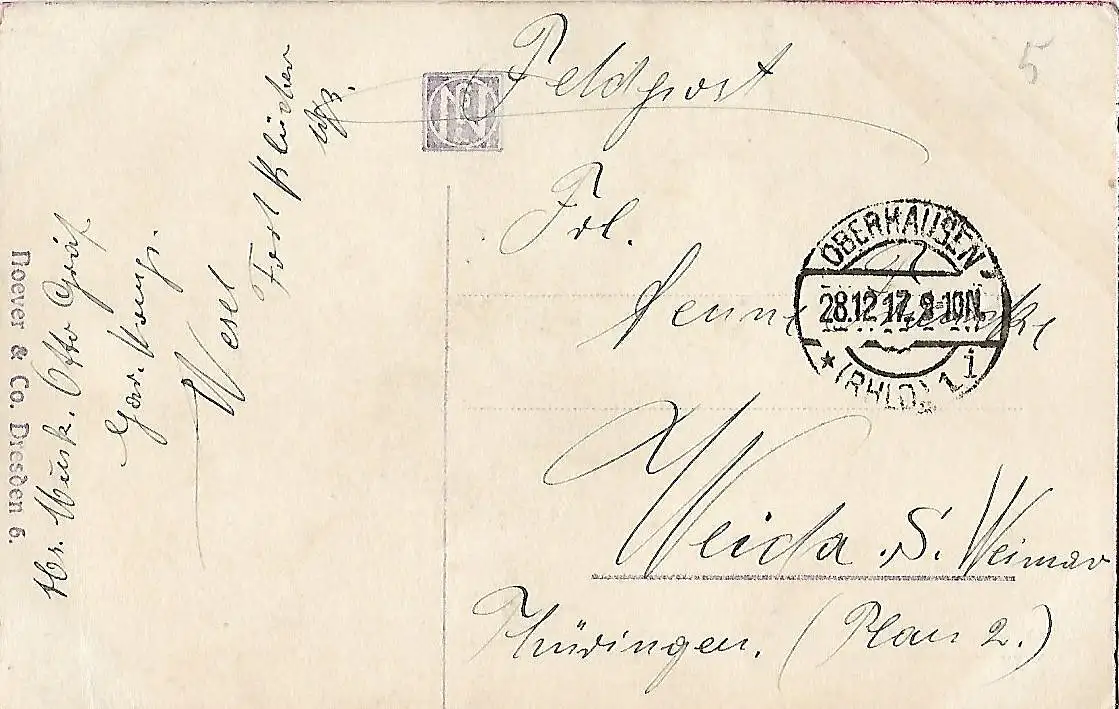 Feldpost
5
Frl.
Weida S. Weimar
Thüringen. (Plan 2.)
OBERHAUSEN
28.12.17. 8-10N.
* (RHLD) 1 i
Abs. Musk. Otto Gräf
Wesel
Fort Blücher
Noever & Co. Dresden 6.